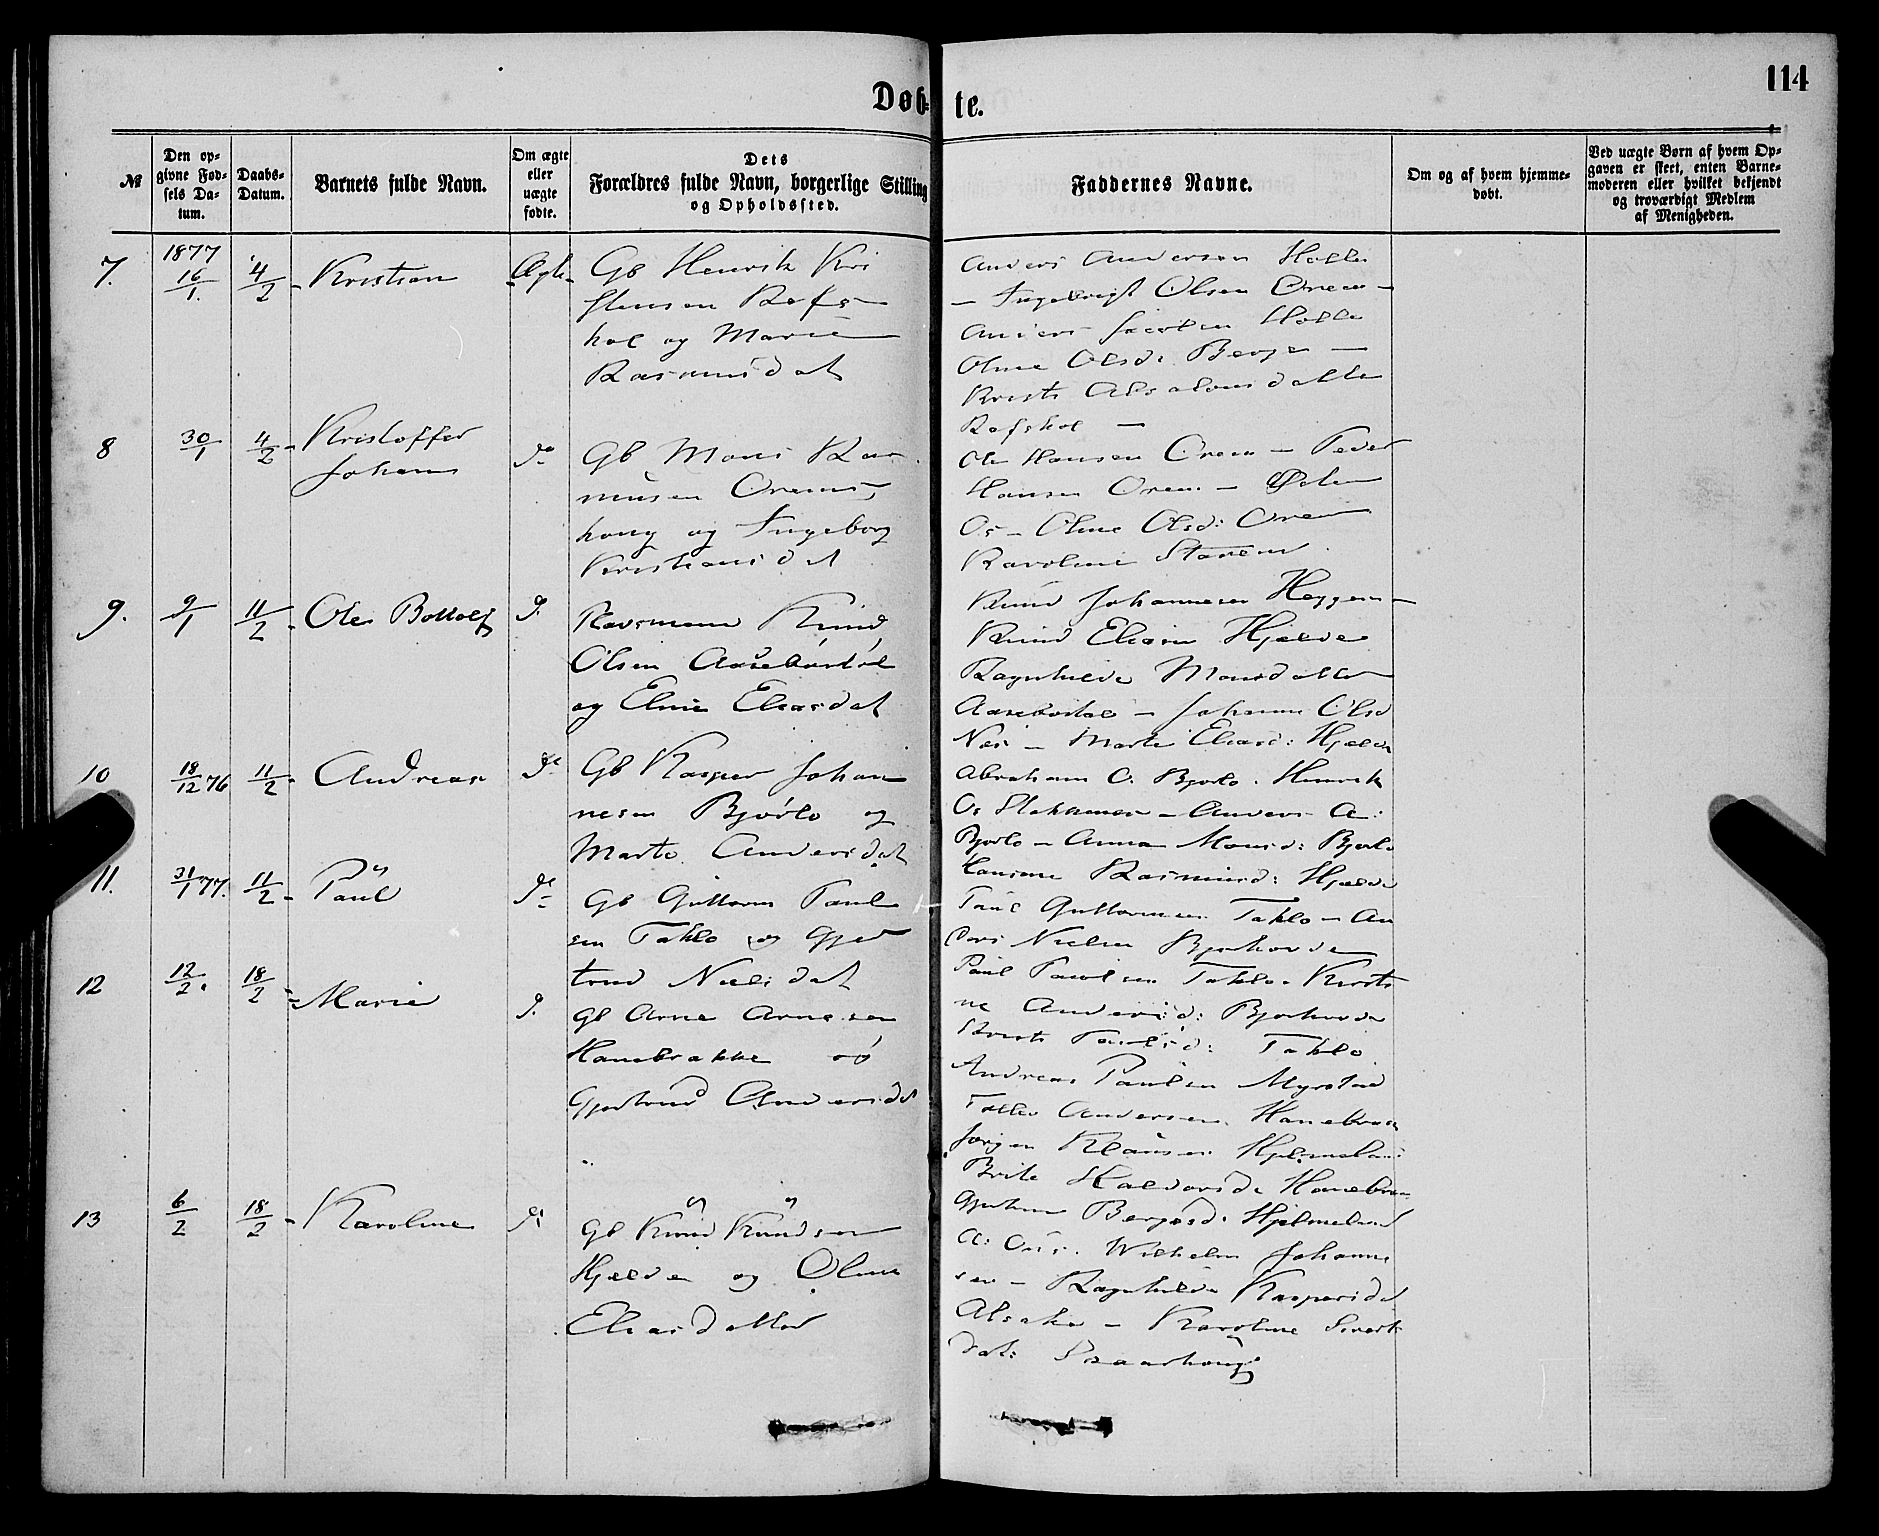 Døb-te.
114
№
Den op-
givne Fød-
sels Da-
tum.
Daabs-
Datum.
Barnets fulde Navn.
Om ægte
eller
uægte
fødte.
Dets
Forældres fulde Navn, borgerlige Stilling
og Opholdssted.
Faddernes Navne.
Om og af hvem hjemme-
døbt.
Ved uægte Børn af hvem Op-
gaven er skeet, enten Barne-
moderen eller hvilket bekjendt
og troværdigt Medlem
af Menigheden.
7. 1877 16/1. 4/2 Kristian Ægte
Gb Henrik Kri
stensen Refs
hol og Marie
Rasmusdat
Anders Andersen Holle
- Ingebrigt Olsen Orem -
Anders Jacobsen Holle
Oline Olsd: Berge -
Kristi Absalonsdatter
Refshol -
8 30/1 4/2 - Kristoffer
Johan do
Gb Mons Ras
musen Orems
houg og Ingeborg
Kristiansdat
Ole Hansen Orem - Peder
Hansen Orem -
Os - Oline Olsd: Orem
Karoline
9. 9/1 11/2 - Ole Bottolf d.
Knud
Olsen Aasebøstøl
og Eline Eliasdat
Knud Johannesen Heggen -
Knud Eliasen Hjelde
Ragnhilde Monsdatter
Aasebøstøl - Johanne Olsd
Nes - Marte Eliasd: Hjelde
10 18/12 76 11/2 - Andreas do
Gb Kasper Johan
nesen Bjørlo og
Marte Andersdat
Abraham O. Bjørlo. Henrik
Os - Anders A:
Bjørlo - Anna Monsd: Bjørlo
Hansine Rasmusd: Hjelde
11. 31/1 77. 11/2 - Paul do
Gb Guttorm Paul
sen Taklo og Gjer
trud Nielsdat
Paul Guttormsen Taklo - An
ders Nielsen
Paul Paulsen Taklo. Kirsti
ne Andersd:
Kristi Paulsd: Taklo
12 12/2. 18/2 - Marie d.
Gb Arne Arnesen
Hanebrekke og
Gjertrud Andersdt
Andreas Paulsen Myrstad
Andersen Hanebrek
Jørgen Klausen Hjelmeland
Brite Hanebre
Gjertrud Bergesd: Hjelmeland
13 6/2 18/2 - Karoline do
Gb Knud Knudsen
Hjelde og Oline
Eliasdatter
A: Wilhelm Johanne
sen - Ragnhilde Kaspersdat
Alsaker - Karoline Sivert
dat: Skaarhoug